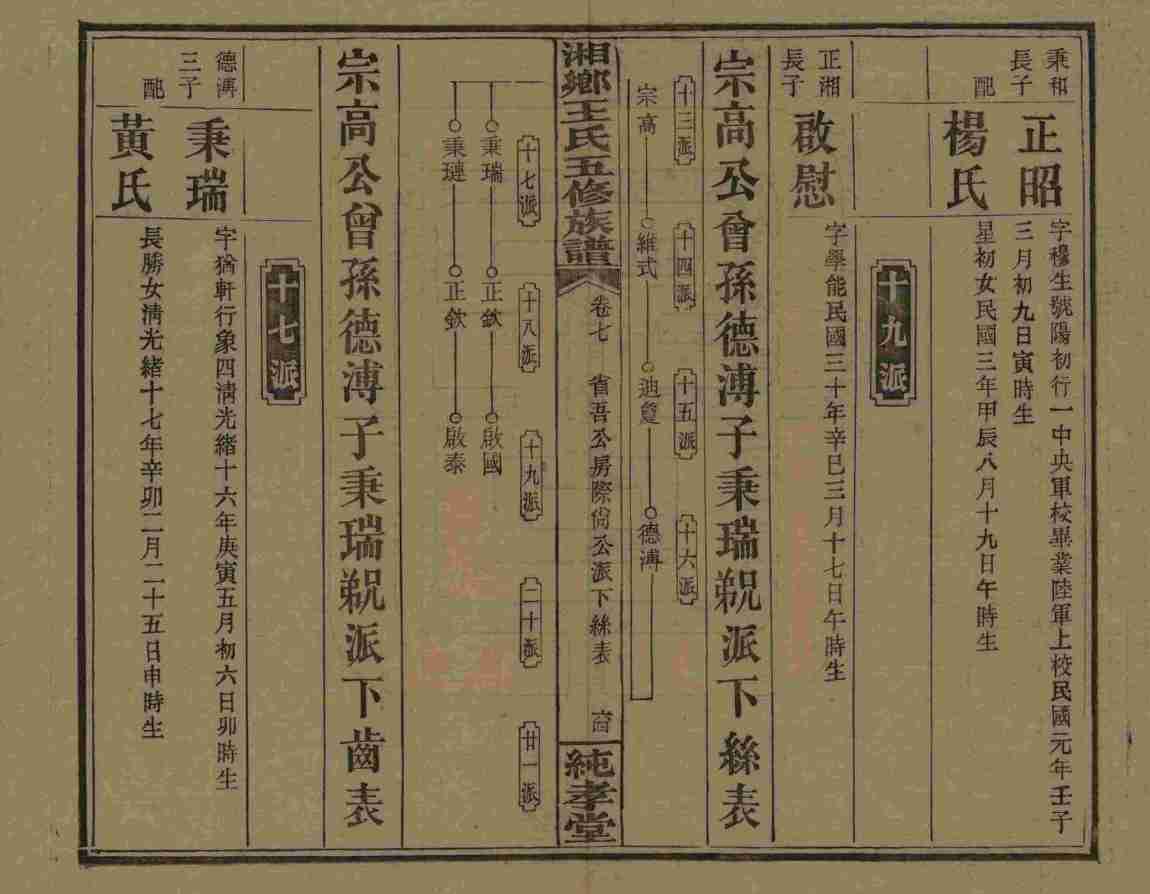 秉和
長子
正昭
字穆生號陽初行一中央軍校畢業陸軍上校民國元年壬子
三月初九日寅時生
配
楊氏
星初女民國三年甲辰八月十九日午時生
十九派
正湘
長子
啟慰
字學能民國三十年辛巳三月十七日午時生
宗高公曾孫德溥子秉瑞䙷派下絲表
十三派
十四派
十五派
十六派
宗高
維式
迪簋
德溥
湘鄉王氏五修族譜
卷七
省吾公房際尙公派下絲表
純孝堂
十七派
十八派
十九派
二十派
廿一派
秉瑞
正欽
啟國
秉璉
正欽
啟泰
宗高公曾孫德溥子秉瑞䙷派下齒表
十七派
德溥
三子
秉瑞
字猶軒行象四淸光緒十六年庚寅五月初六日卯時生
配
黃氏
長勝女淸光緒十七年辛卯二月二十五日申時生